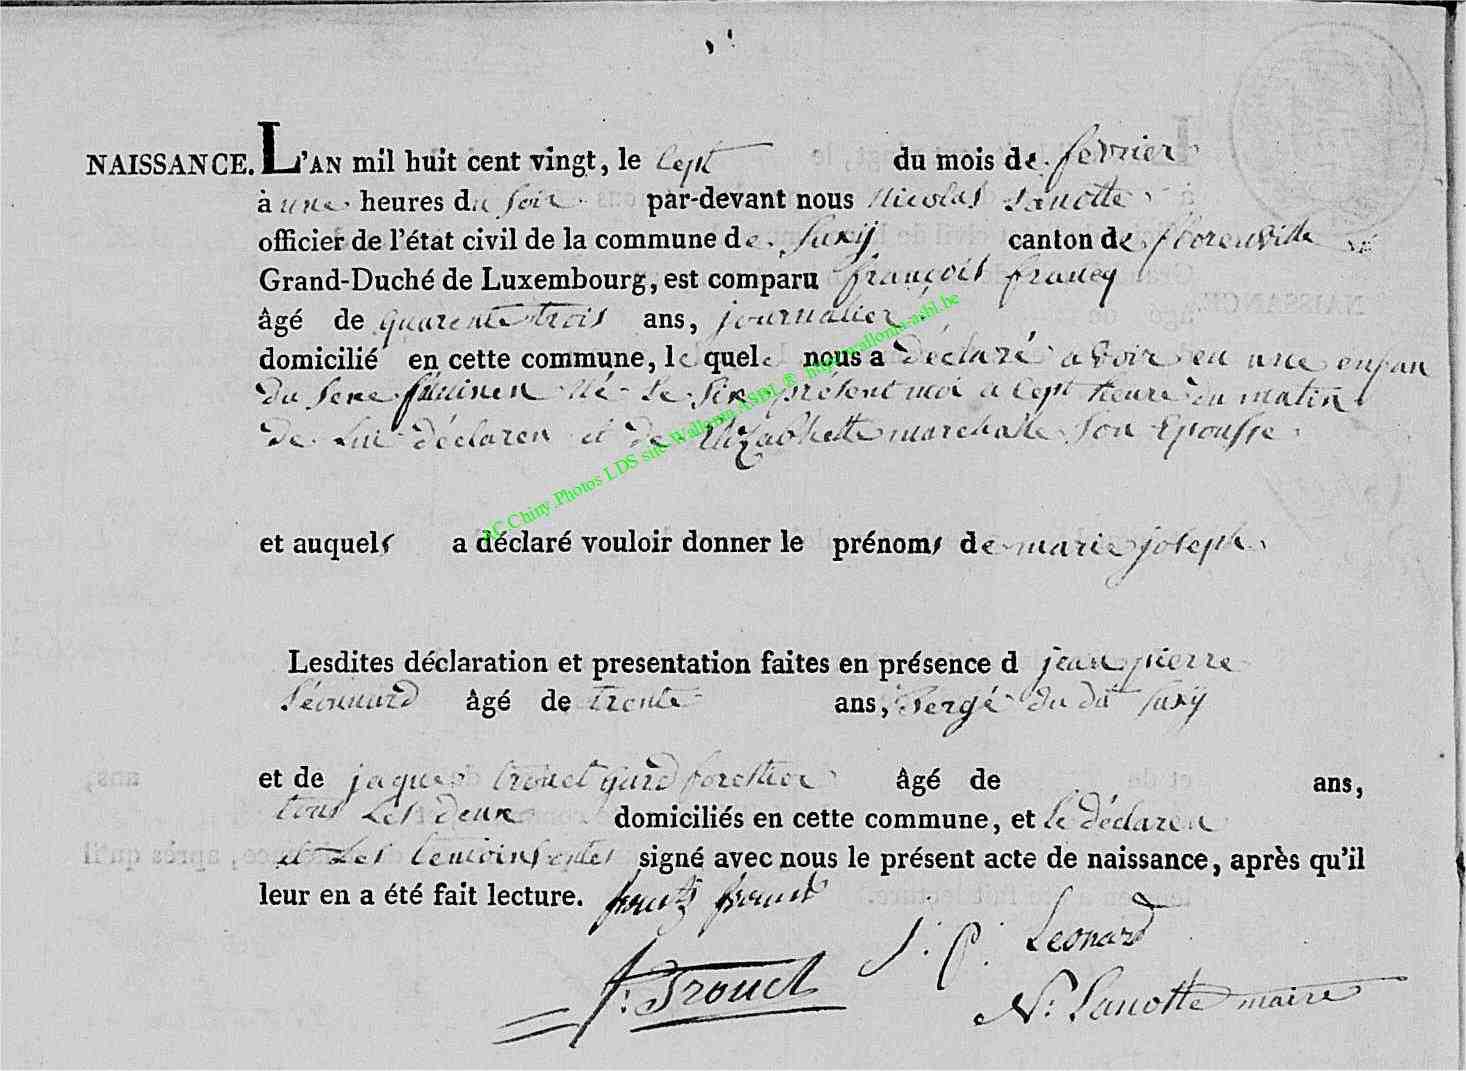 NAISSANCE. L'AN mil huit cent vingt, le Sept du mois de fevrier
à une heures du soir par-devant nous Nicolas Lanotte
officier de l'état civil de la commune de Suxÿ canton de florenville
Grand-Duché de Luxembourg, est comparu françois francq
âgé de quarente trois ans, journalier
domicilié en cette commune, le quel nous a déclaré avoir eu une enfan
du sexe féminen né le six présent moi a Sept heure du matin
de lui déclaren et de Elizabette marchalle son Epousse
et auquels a déclaré vouloir donner le prénoms de marie joseph
Lesdites déclaration et presentation faites en présence d jean pierre
Léonnard âgé de trente ans, Bergé du dit Suxÿ
et de jaques trouet gard forestier âgé de ans,
tous les deux domiciliés en cette commune, et le déclaren
et les temoins signé avec nous le présent acte de naissance, après qu'il
leur en a été fait lecture.
J. P. Leonard
J: Trouet
N: Lanotte maire
AC.Chiny.Photos LDS site Wallonia ASBL ® http://wallonia-asbl.be